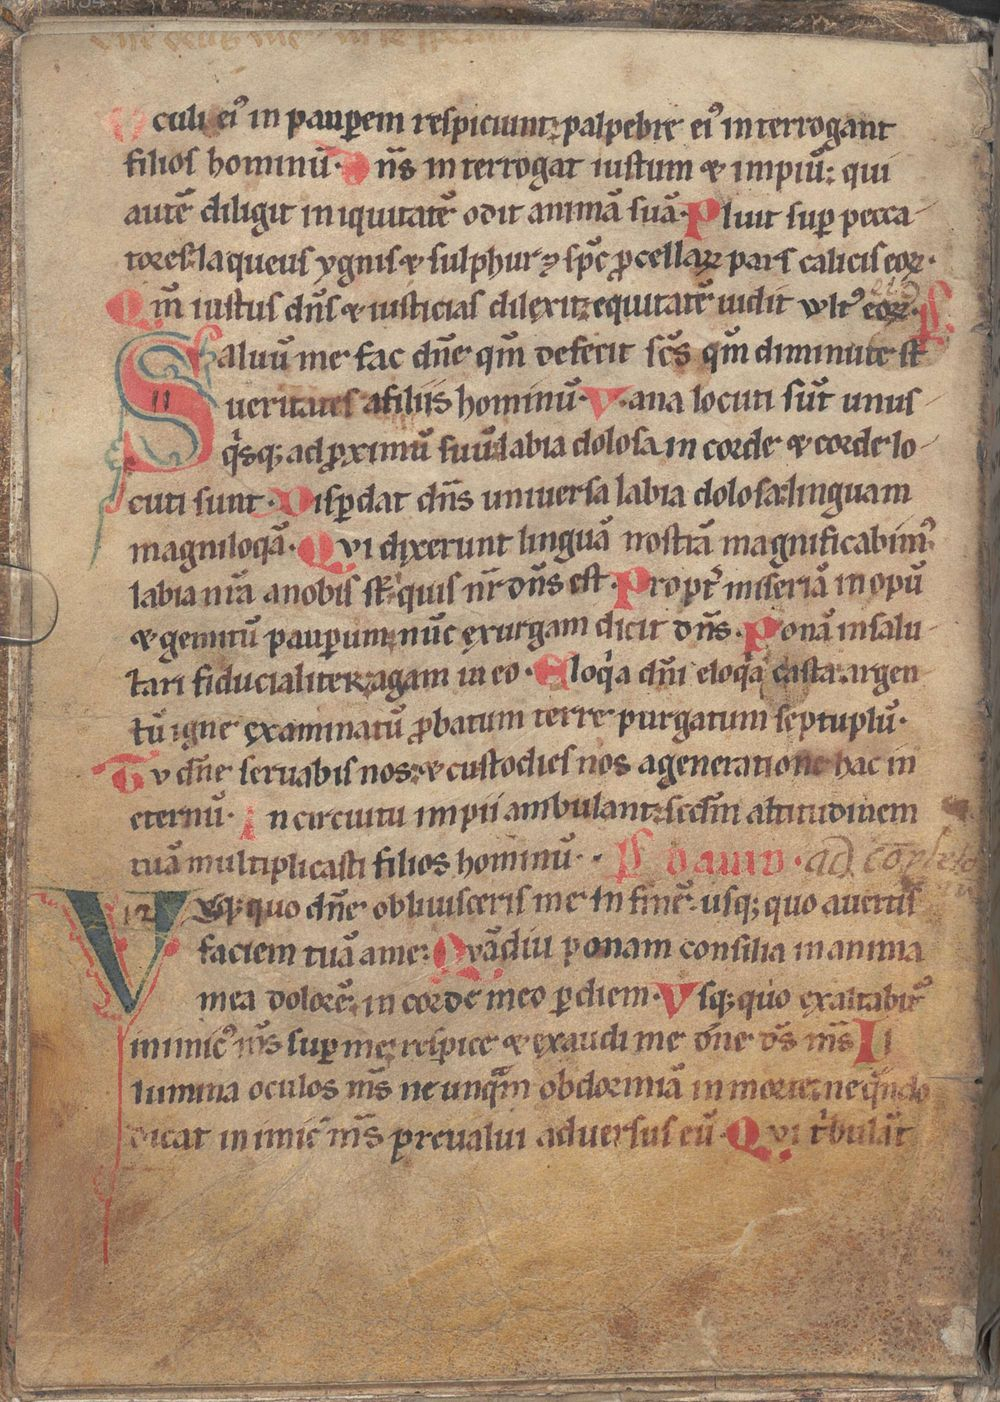 Oculi eiꝰ in pauꝑem respiciunt: palpebre eiꝰ interrogant
filios hominū. Dn̄s interrogat iustum ⁊ impiū: qui
autē diligit iniquitatē odit animā suā. Pluit suꝑ pecca-
tores laqueus ygnis ⁊ sulphur ⁊ sp̄c ꝓcellaꝝ pars calicis eoꝝ.
Qm̄ iustus dn̄s ⁊ iusticias dilexit: equitatē uidit wltꝰ eoꝝ. P̄
Saluū me fac dn̄e qm̄ defecit sc̄s qm̄ diminute st̄
11 ueritates afiliis hominū. Vana locuti sūt unus-
qͥsqꝫ ad ꝓximū suū: labia dolosa in corde ⁊ corde lo-
cuti sunt. Disꝑdat dn̄s uniuersa labia dolosa: linguam
magniloqͣ. Qvi dixerunt linguā nostrā magnificabimꝰ
labia nr̄a anobis st̄: quis nr̄ dn̄s est. Propt̉ miseriā inopū
⁊ gemitū pauꝑum: nūc exurgam dicit dn̄s. Ponā insalu-
tari fiducialiter: agam in eo. Eloqͥa dn̄i eloqͥa casta: argen
tū igne examinatū ꝓbatum terre purgatum septuplū.
Tv dn̄e seruabis nos: ⁊ custodies nos ageneratione hac in
eternū. In circuitu impii ambulant: sc̄dm altitudinem
tuā multiplicasti filios hominū. P̄ dauid. ad cōpleto
12 Vsqꝫ quo dn̄e obliuisceris me in finē: usqꝫ quo auertis
faciem tuā ame: Qvādiu ponam consilia inanima
mea dolorē: in corde meo ꝑ diem. Vsqꝫ quo exaltabit̉
inimicꝰ m̄s suꝑ me: respice ⁊ exaudi me dn̄e ds̄ m̄s Il
lumina oculos m̄s ne unqͣm obdormiā in morte: ne qͣndo
dicat inimic̄ m̄s preualui aduersus eū. Qvi tͥbulāt